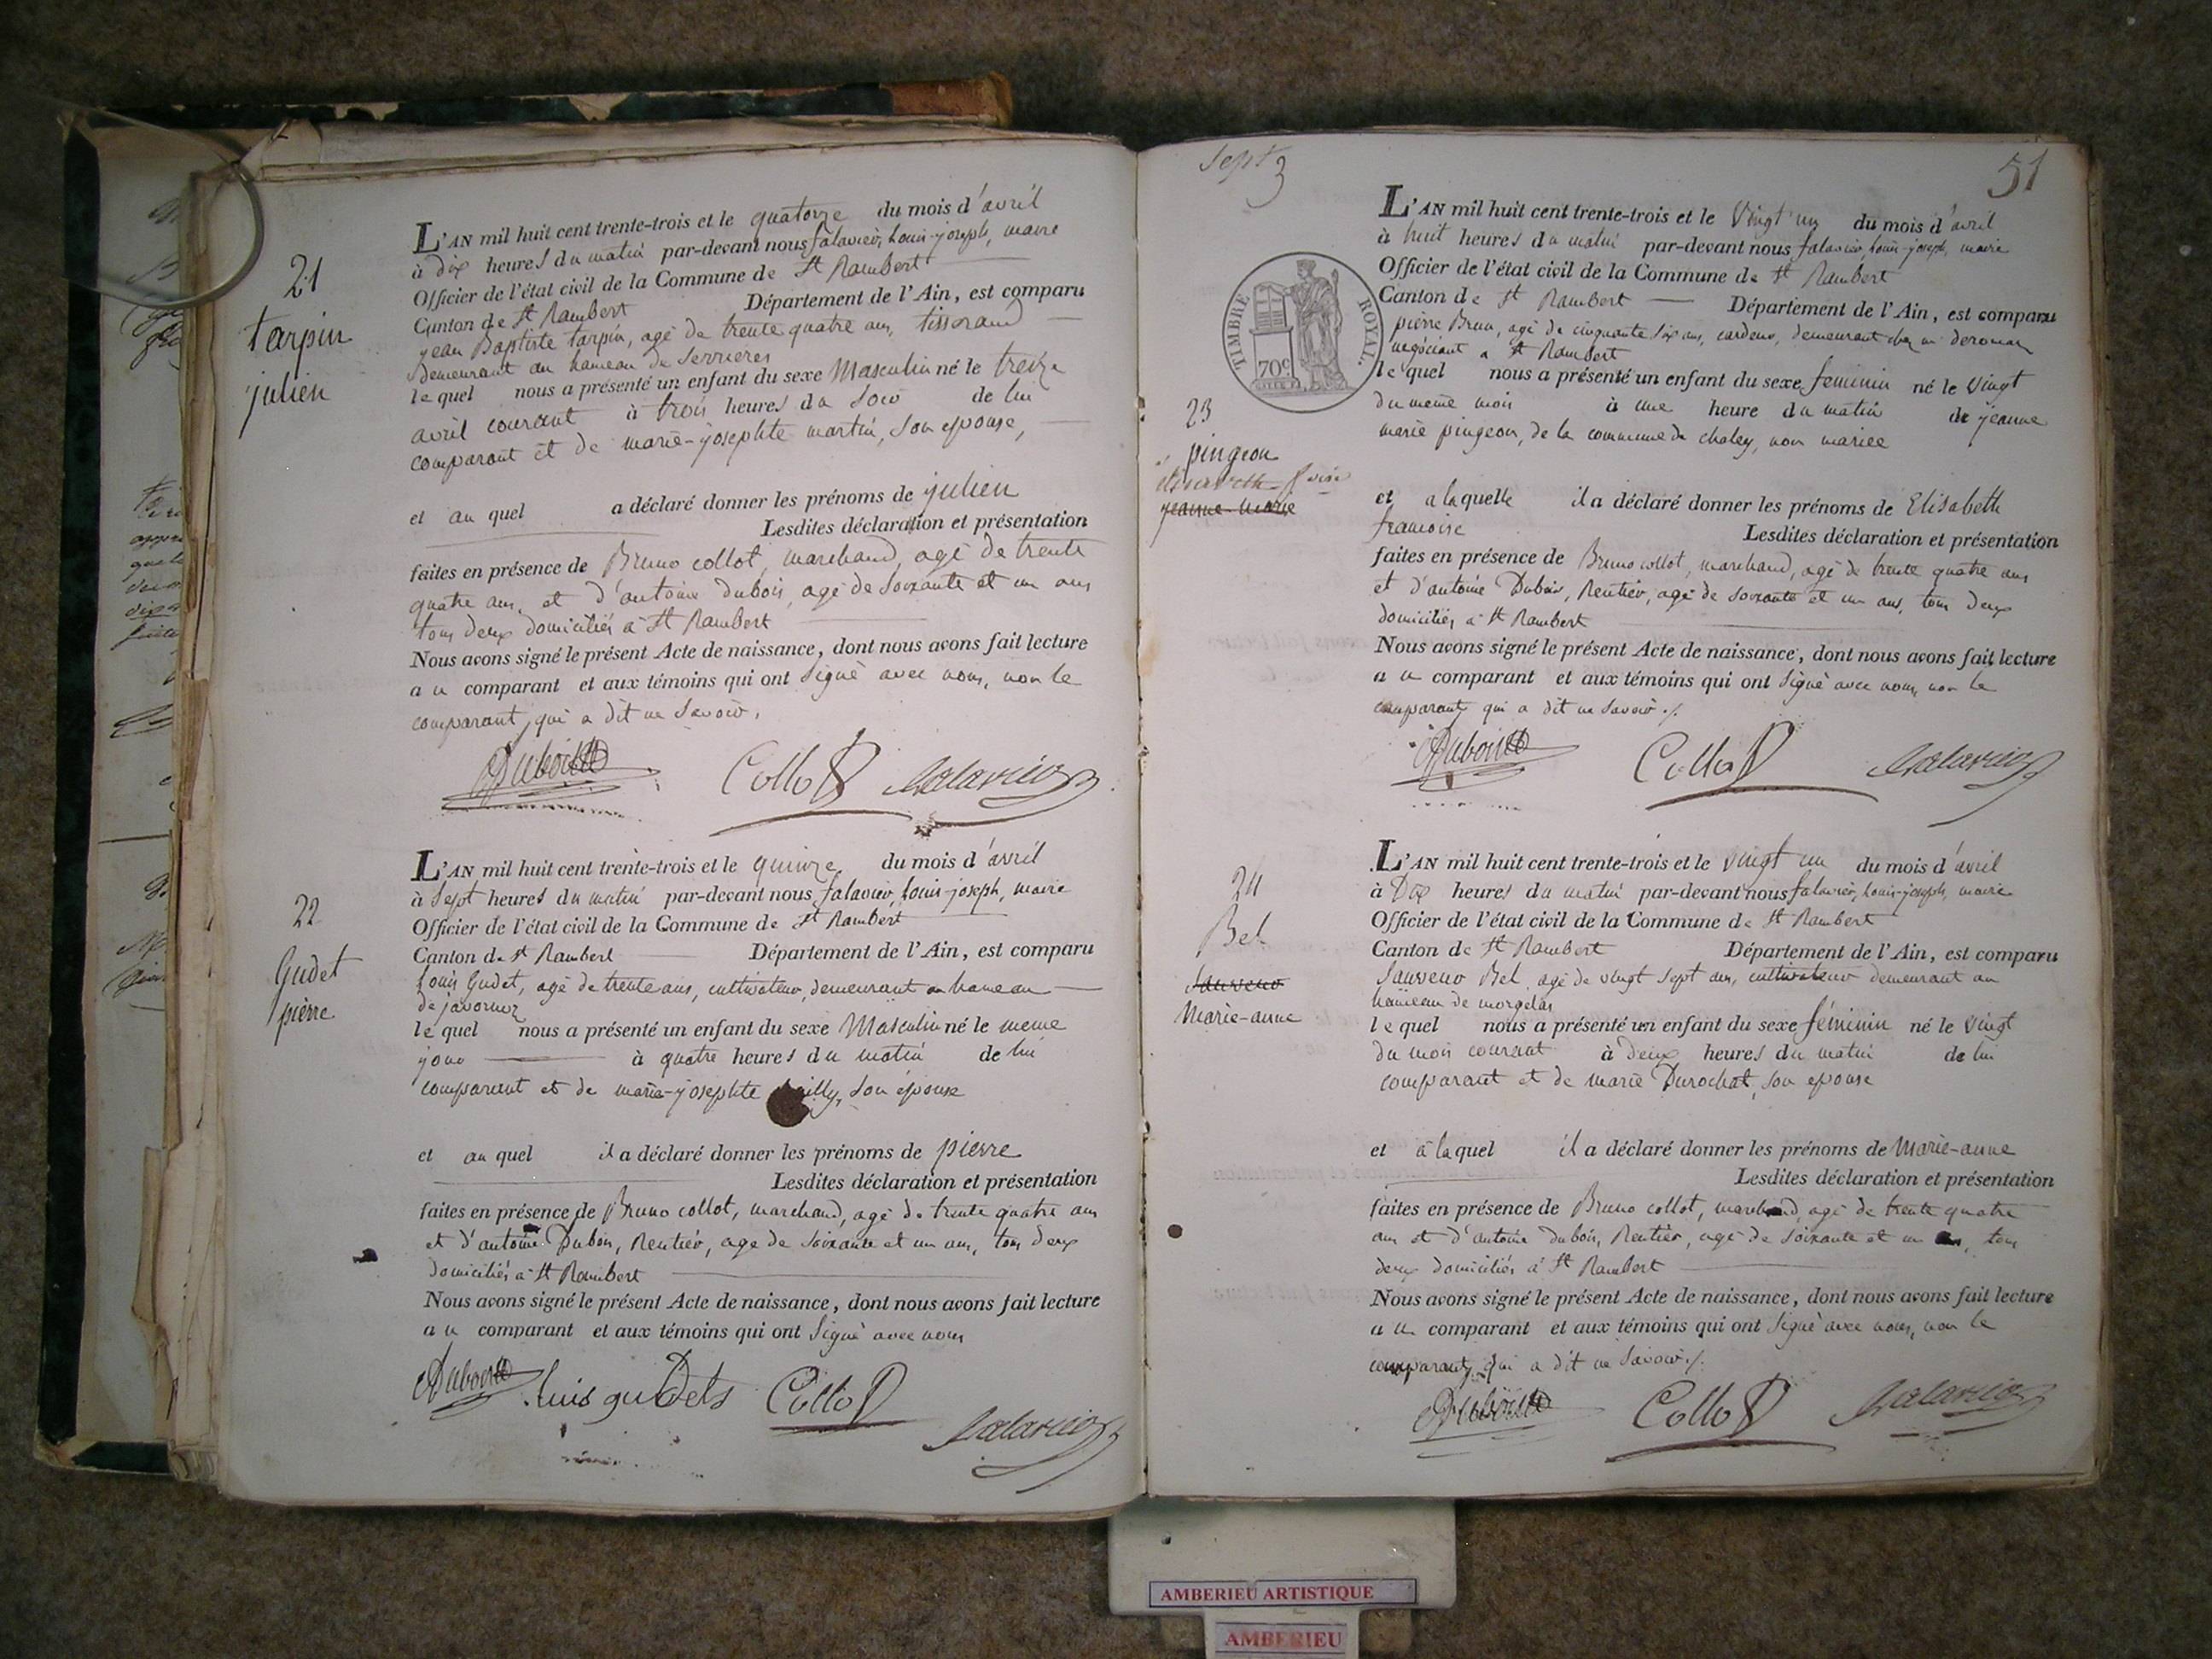 21
tarpin
julien
L'AN mil huit cent trente-trois et le quatorze du mois d'avril
à dix heures du matin par-devant nous falavier, louis-joseph, maire
Officier de l'état civil de la Commune de St Rambert
Canton de St Rambert Département de l'Ain, est comparu
jean Baptiste tarpin, agé de trente quatre ans, tisserand
demeurant au hameau de Serrieres
le quel nous a présenté un enfant du sexe Masculin né le treize
avril courant à trois heures du soir de lui
comparant et de marie-josephte martin, son epouse,
et au quel a déclaré donner les prénoms de julien
Lesdites déclaration et présentation
faites en présence de Bruno collot, marchand, agé de trente
quatre ans, et d'antoine dubois, agé de soixante et un ans
tous deux domiciliés à St Rambert
Nous avons signé le présent Acte de naissance, dont nous avons fait lecture
au comparant et aux témoins qui ont signé avec nous, non le
comparant, qui a dit ne savoir.
Dubois Collot falavier
22
Gudet
pierre
L'AN mil huit cent trente-trois et le quinze du mois d'avril
à Sept heures du matin par-devant nous falavier, louis-joseph, maire
Officier de l'état civil de la Commune de St Rambert
Canton de St Rambert Département de l'Ain, est comparu
louis Gudet, agé de trente ans, cultivateur, demeurant au hameau
de javornoz
le quel nous a présenté un enfant du sexe Masculin né le meme
jour à quatre heures du matin de lui
comparant et de marie-josephte son épouse
et au quel il a déclaré donner les prénoms de pierre
Lesdites déclaration et présentation
faites en présence de Bruno collot, marchand, agé de trente quatre ans
et d'antoine Dubois, Rentier, age de soixante et un ans, tous deux
domiciliés à St Rambert
Nous avons signé le présent Acte de naissance, dont nous avons fait lecture
au comparant et aux témoins qui ont signé avec nous
Dubois luis guDets Collot falavier
Sept 3
51
TIMBRE ROYAL.
70c
23
pingeon
jeanne-marie
L'AN mil huit cent trente-trois et le Vingt un du mois d'avril
à huit heures du matin par-devant nous falavier, louis-joseph, maire
Officier de l'état civil de la Commune de St Rambert
Canton de St Rambert Département de l'Ain, est comparu
pierre Brun, agé de cinquante six ans, cardeur, demeurant chez
negociant a St Rambert
le quel nous a présenté un enfant du sexe feminin né le vingt
du meme mois à une heure du matin de jeanne
marie pingeon, de la commune de chaley, non mariee
et a laquelle il a déclaré donner les prénoms de Elisabeth
francoise
Lesdites déclaration et présentation
faites en présence de Bruno collot, marchand, agé de trente quatre ans
et d'antoine Dubois, Rentier, agé de soixante et un ans, tous deux
domiciliés à St Rambert
Nous avons signé le présent Acte de naissance, dont nous avons fait lecture
au comparant et aux témoins qui ont signé avec nous, non le
comparant, qui a dit ne savoir ./.
Dubois Collot falavier
24
Bel
Sauveur
Marie-anne
L'AN mil huit cent trente-trois et le vingt un du mois d'avril
à Dix heures du matin par-devant nous falavier, louis-joseph, maire
Officier de l'état civil de la Commune de St Rambert
Canton de St Rambert Département de l'Ain, est comparu
Sauveur Bel, agé de vingt Sept ans, cultivateur demeurant au
hameau de morgelas
le quel nous a présenté un enfant du sexe féminin né le vingt
du mois courant à Deux heures du matin de lui
comparant et de marie Durochat, son epouse
et à laquel il a déclaré donner les prénoms de Marie-anne
Lesdites déclaration et présentation
faites en présence de Bruno collot, marchand, agé de trente quatre
ans et d'antoine dubois, Rentier, agé de soixante et un ans, tous
deux domiciliés à St Rambert
Nous avons signé le présent Acte de naissance, dont nous avons fait lecture
au comparant et aux témoins qui ont signé avec nous, non le
comparant, qui a dit ne savoir ./.
Dubois Collot falavier
AMBERIEU ARTISTIQUE
AMBERIEU